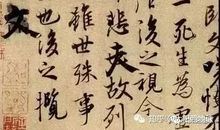 一死生為虛
後之視今
悲夫故列
雖世殊事
也後之攬
文